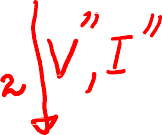 2 V", I"